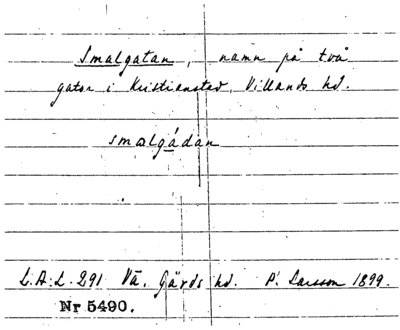 Smalgatan, namn på två
gator i Kristianstad, Villands hd.
smalgádan
L.A.L. 291 Vä, Gärds hd. P. Larsson 1899.
Nr 5490.